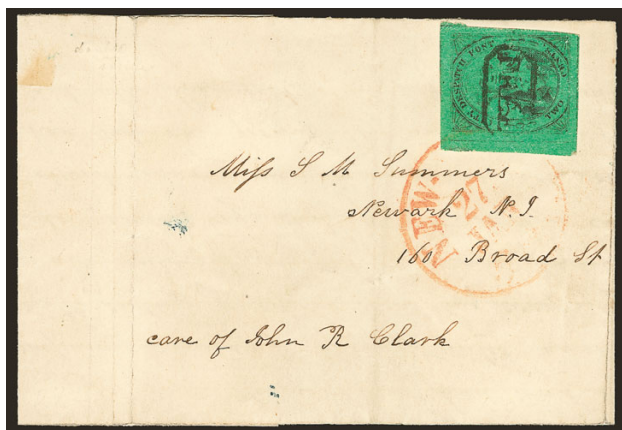 CITY DISPATCH POST
TWO CENTS
FREE
Miſs S M Summers
Newark N.J.
160 Broad St
NEW-
27
care of John R Clark